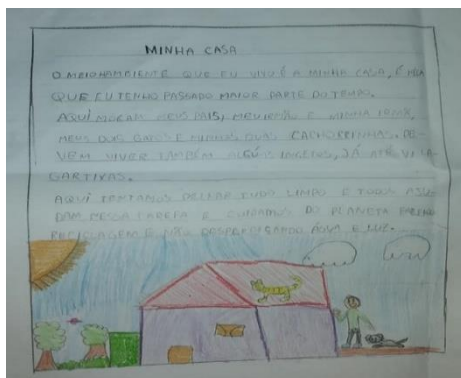 MINHA CASA
O MEIO AMBIENTE QUE EU VIVO É A MINHA CASA, É NELA
QUE EU TENHO PASSADO MAIOR PARTE DO TEMPO.
AQUI MORAM MEUS PAIS, MEU IRMÃO E MINHA IRMÃ,
MEUS DOIS GATOS E MINHAS DUAS CACHORRINHAS. DE-
VEM VIVER TAMBÉM ALGUNS INSETOS, JÁ ATÉ VI LA-
GARTIXAS.
AQUI TENTAMOS DEIXAR TUDO LIMPO E TODOS AJU-
DAM NESSA TAREFA E CUIDAMOS DO PLANETA
RECICLAGEM E NÃO DESPERDIÇANDO ÁGUA E LUZ.